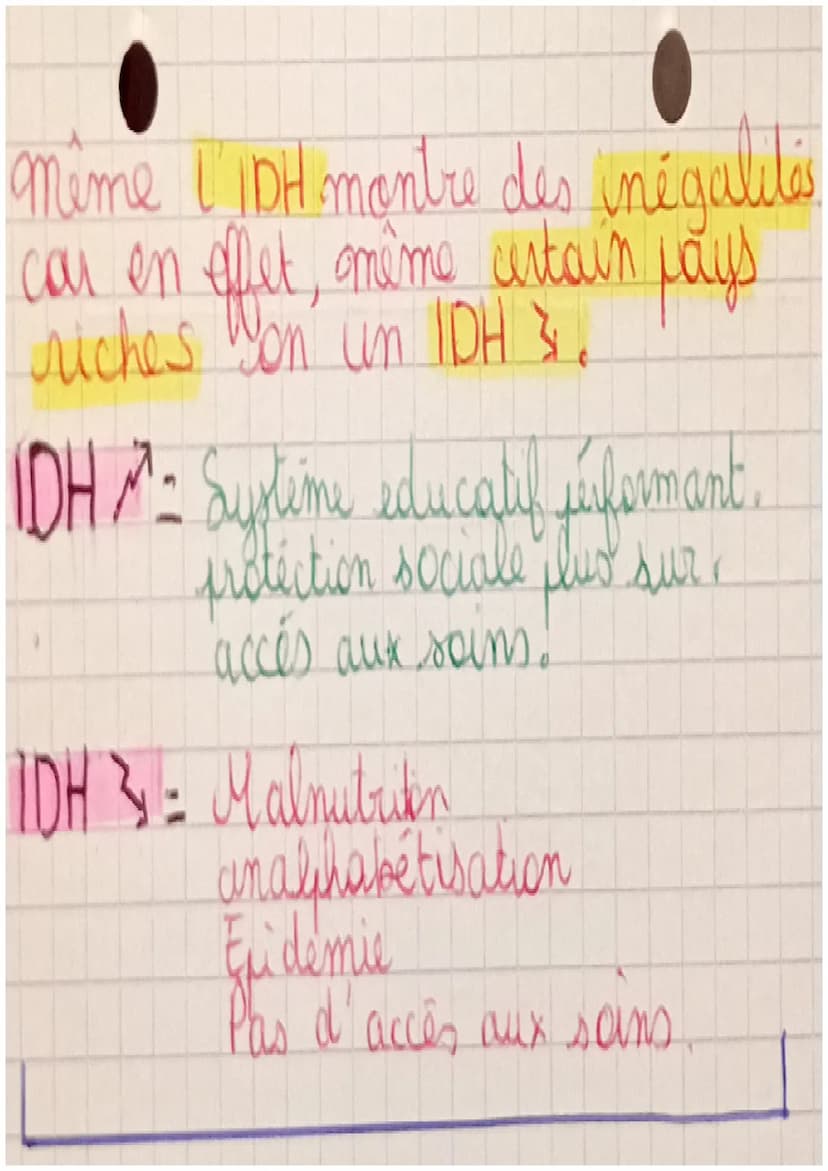 même l'IDH montre des inégalités
car en effet, même certain pays
riches on un IDH ↘.
IDH ↗ = Système educatif pérformant.
protéction sociale plus sur.
accés aux soins.
IDH ↘ = Malnutrition
analphabétisation
Epidémie
Pas d'accès aux soins.